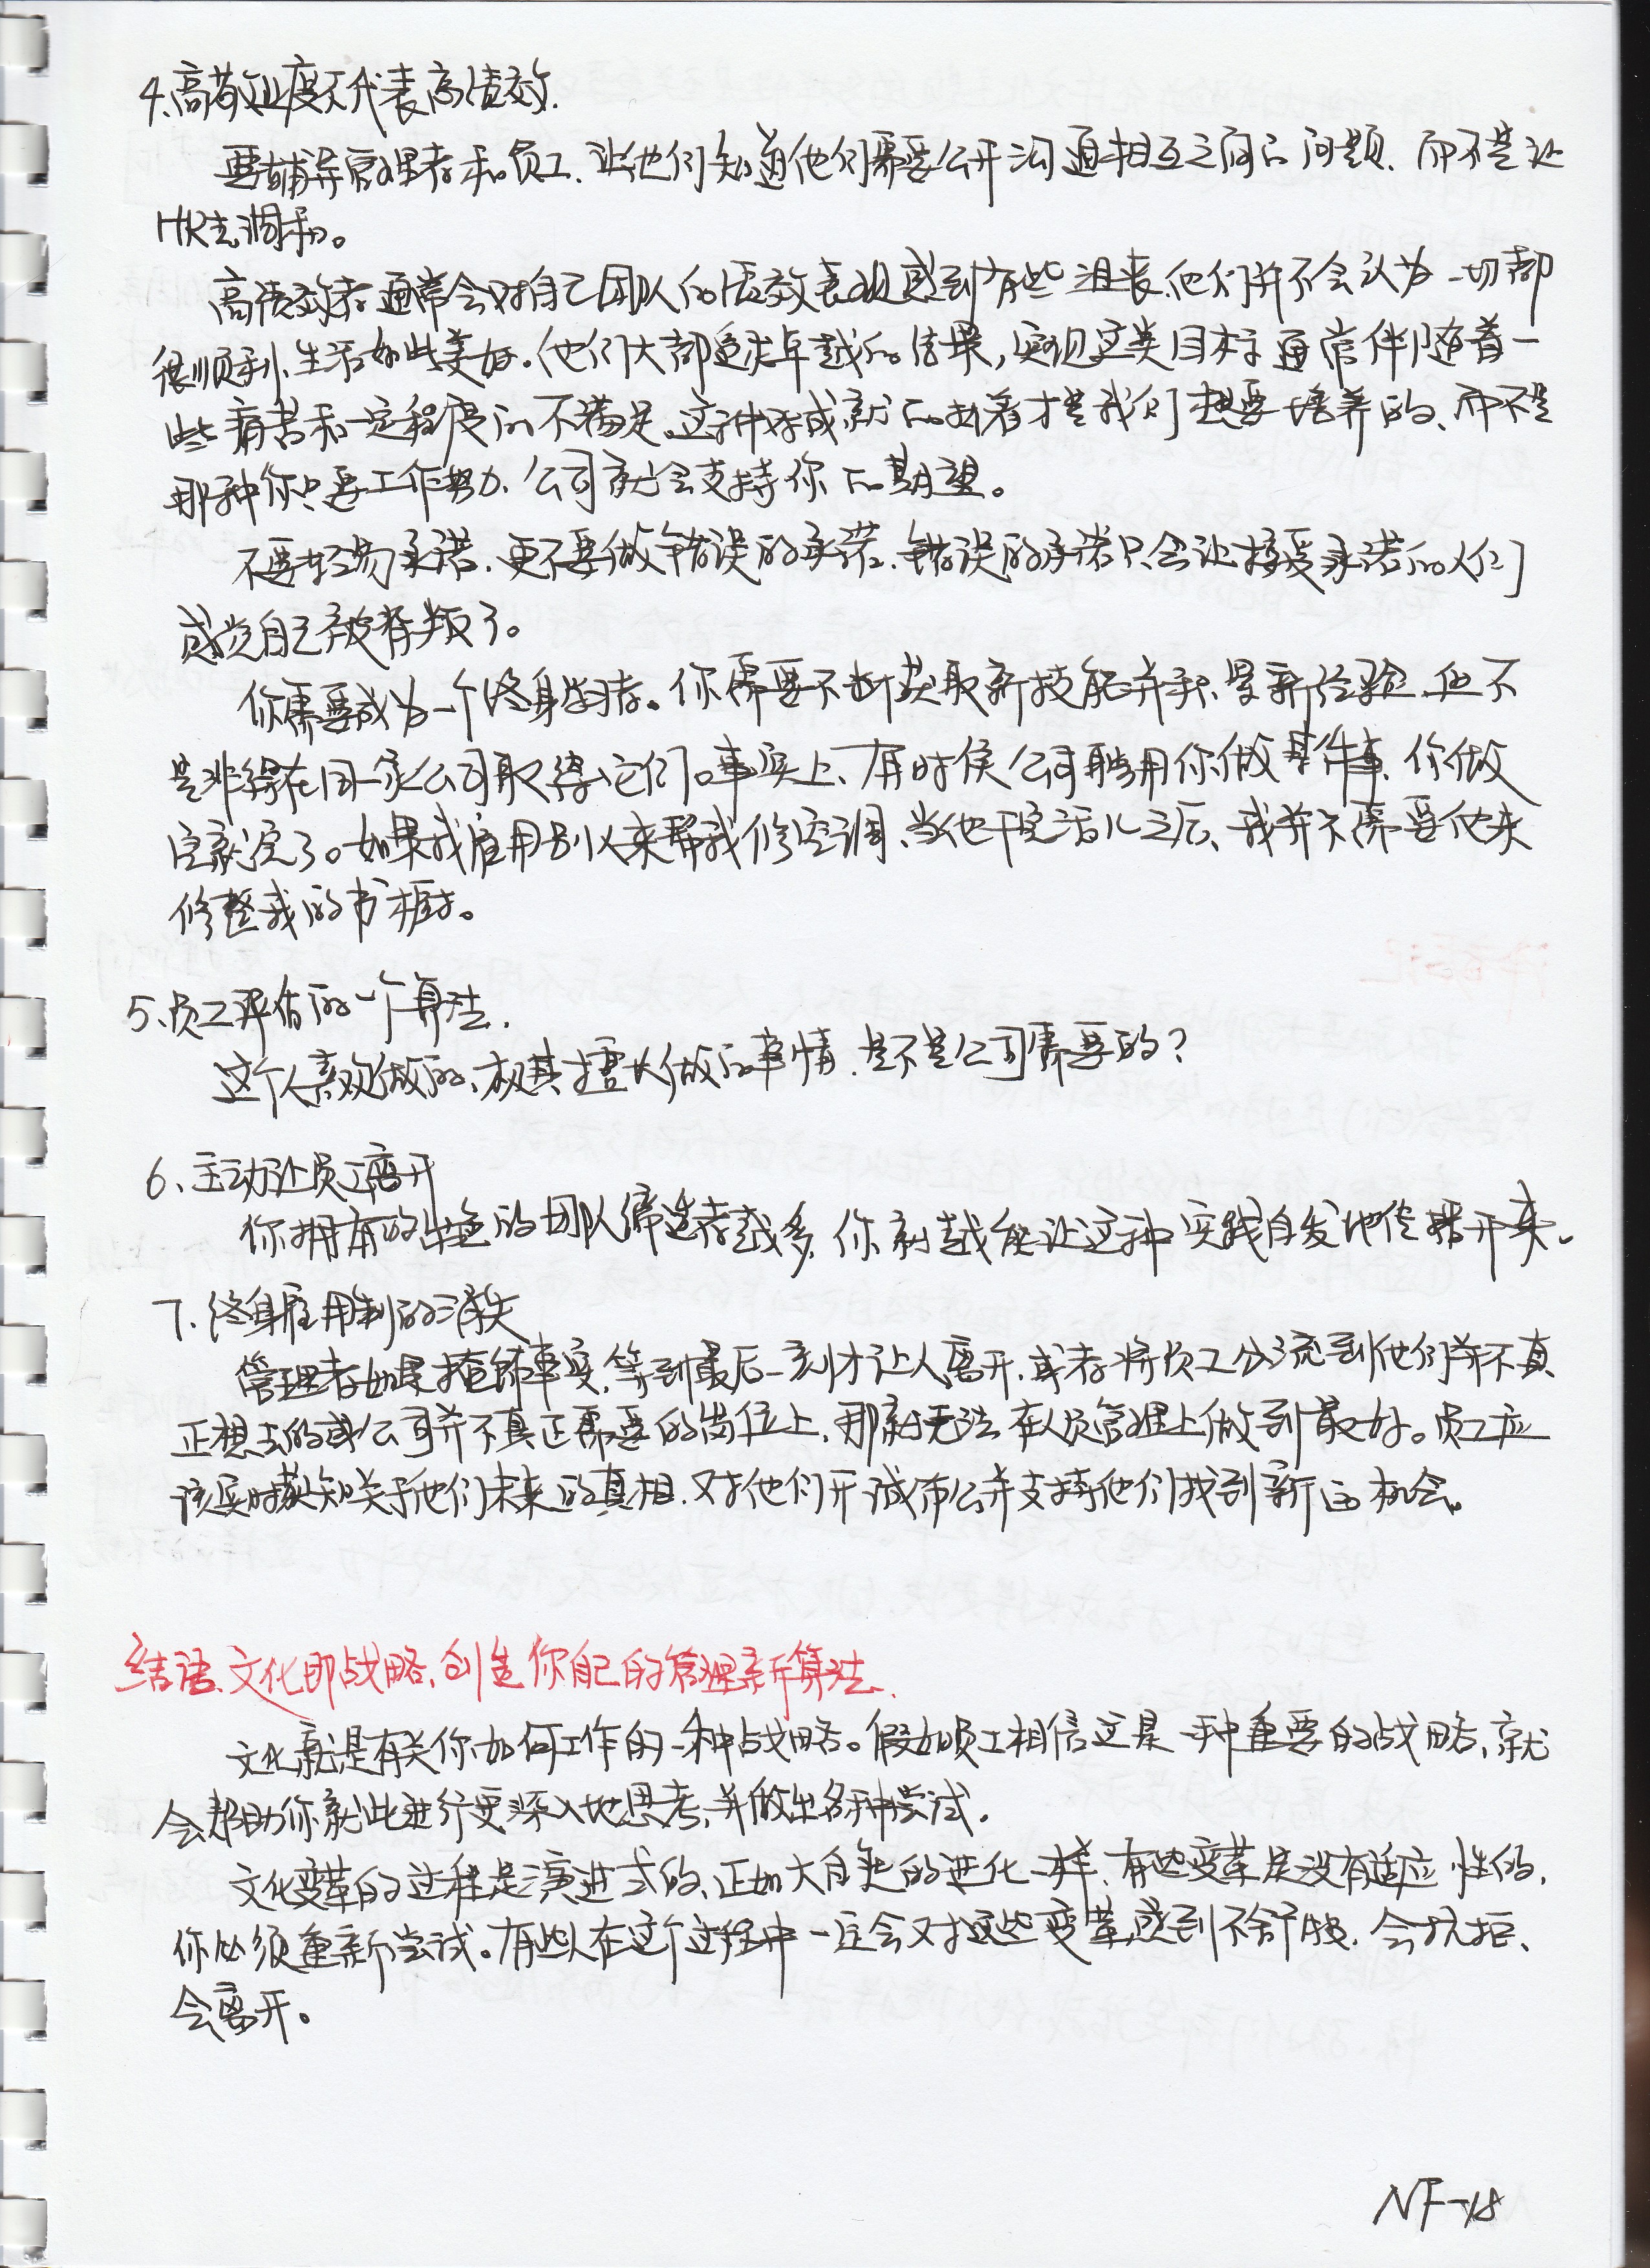 4、高敬业度不代表高绩效.
要辅导管理者和员工,让他们知道他们需要公开沟通相互之间的问题.而不是让
HR去调和。
高绩效者通常会对自己团队的绩效表现感到有些沮丧.他们并不会认为一切都
很顺利、生活如此美好.他们大都追求卓越的结果,实现这类目标通常伴随着一
些痛苦和一定程度的不满足。这种对成就的执着才是我们想要培养的、而不是
那种你只要工作努力、公司就会支持你的期望。
不要轻易承诺.更不要做错误的承诺.错误的承诺只会让接受承诺的人们
感觉自己被背叛了。
你需要成为一个终身学习者。你需要不断获取新技能并积累新经验.但不
是非得在同一家公司取得它们。事实上、有时候公司聘用你做某件事、你做
完就完了。如果我雇用别人来帮我修空调、当他干完活儿之后、我并不需要他来
修整我的书橱。
5、员工评估的一个算法.
这个人喜欢做的、极其擅长做的事情.是不是公司需要的?
6、主动让员工离开
你拥有的出色的团队缔造者越多,你就越能让这种实践自发地传播开来。
7.终身雇用制的消失
管理者如果掩饰事实,等到最后一刻才让人离开,或者将员工分流到他们并不真
正想去的或公司并不真正需要的岗位上、那就无法在人员管理上做到最好。员工应
该实时获知关于他们未来的真相.对他们开诚布公并支持他们找到新的机会。
结语、文化即战略,创造你自己的管理新算法.
文化就是有关你如何工作的一种战略。假如员工相信这是一种重要的战略、就
会帮助你就此进行更深入地思考,并做出各种尝试.
文化变革的过程是演进式的、正如大自然的进化一样、有些变革是没有适应性的.
你必须重新尝试。有些人在这个过程中一定会对这些变革感到不舒服.会抗拒、
会离开。
NF-18